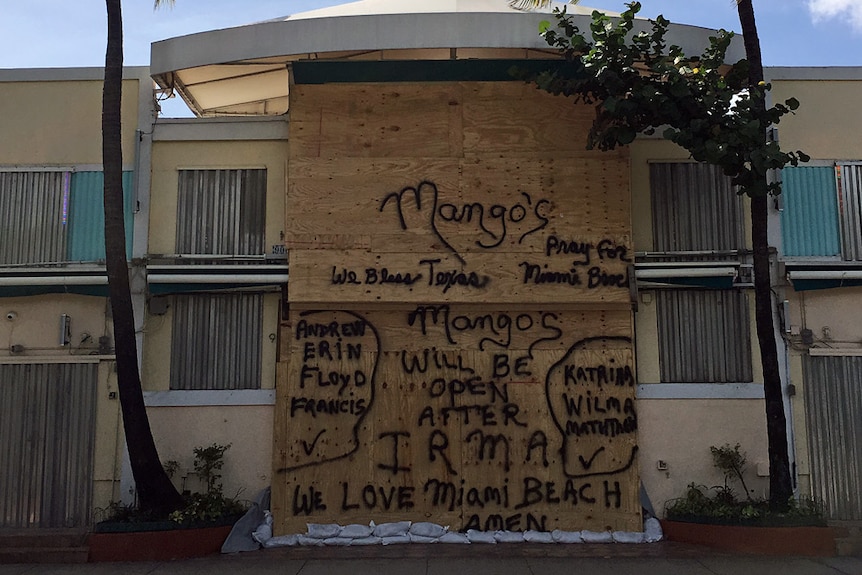 Mango's
Pray for
We Bless Texas
Miami Beach
Mango's
ANDREW
ERIN
FLOYD
FRANCIS
WILL BE
OPEN
AFTER
IRMA
KATRINA
WILMA
MATTHEW
WE LOVE Miami BEACH
AMEN